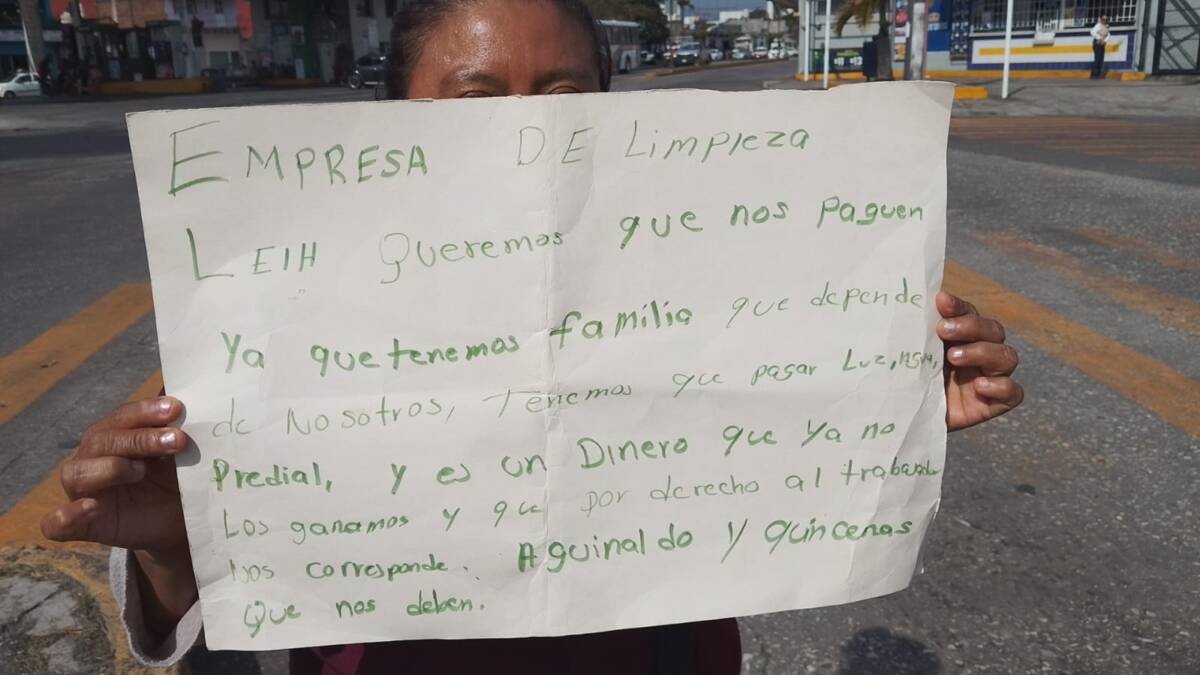 EMPRESA DE Limpieza
LEIH Queremos que nos paguen
Ya que tenemos familia que depende
de Nosotros, Tenemos que pagar Luz, AGUA,
Predial, y es un Dinero que ya no
Los ganamos y que por derecho al trabajador
Nos corresponde. Aguinaldo y quincenas
Que nos deben.